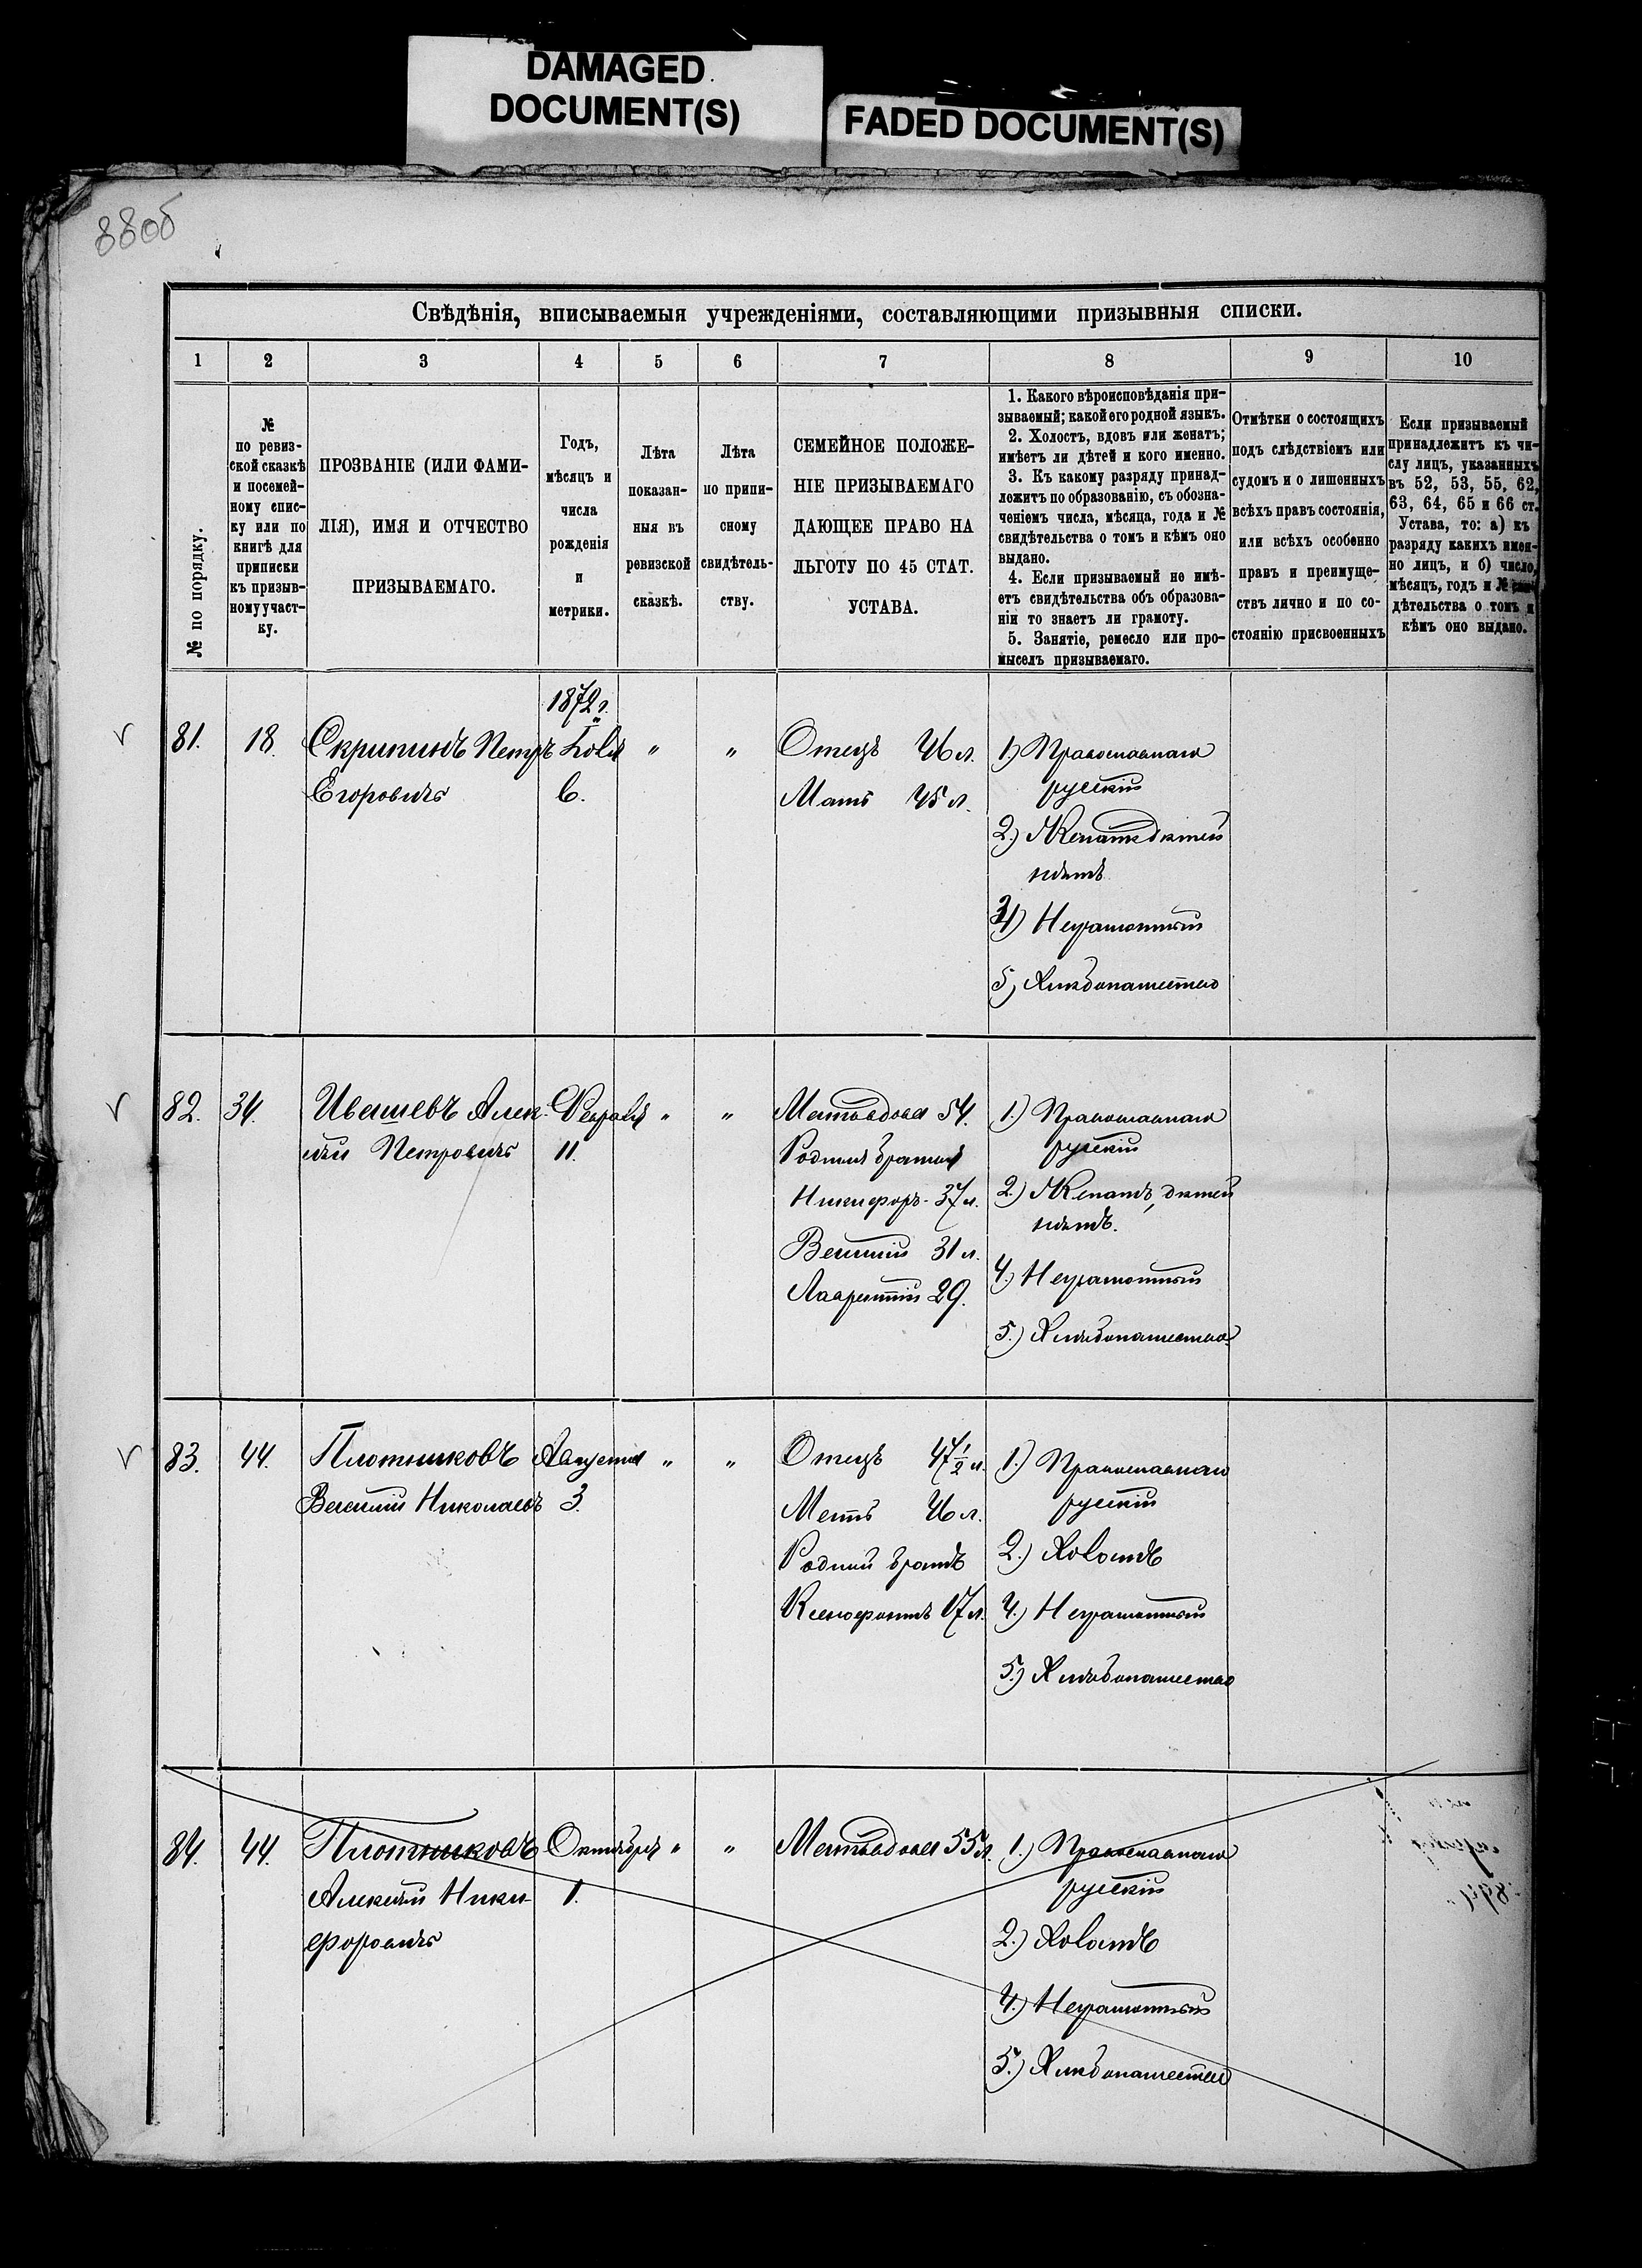 DAMAGED
DOCUMENT(S)
FADED DOCUMENT(S)
88об
Свѣдѣнія, вписываемыя учрежденіями, составляющими призывныя списки.
1 2 3 4 5 6 7 8 9 10
№ по порядку.
№
по ревиз-
ской сказкѣ
и посемей-
ному спис-
ку или по
книгѣ для
приписки
къ призыв-
ному участ-
ку.
ПРОЗВАНІЕ (ИЛИ ФАМИ-
ЛІЯ), ИМЯ И ОТЧЕСТВО
ПРИЗЫВАЕМАГО.
Годъ,
мѣсяцъ и
числа
рожденія
и
метрики.
Лѣта
показан-
ныя въ
ревизской
сказкѣ.
Лѣта
по припи-
сному
свидѣтель-
ству.
СЕМЕЙНОЕ ПОЛОЖЕ-
НІЕ ПРИЗЫВАЕМАГО
ДАЮЩЕЕ ПРАВО НА
ЛЬГОТУ ПО 45 СТАТ.
УСТАВА.
1. Какого вѣроисповѣданія при-
зываемый; какой его родной языкъ.
2. Холостъ, вдовъ или женатъ;
имѣетъ ли дѣтей и кого именно.
3. Къ какому разряду принад-
лежитъ по образованію, съ обозна-
ченіемъ числа, мѣсяца, года и №
свидѣтельства о томъ и кѣмъ оно
выдано.
4. Если призываемый не имѣ-
етъ свидѣтельства объ образова-
ніи то знаетъ ли грамоту.
5. Занятіе, ремесло или про-
мыселъ призываемаго.
Отмѣтки о состоящихъ
подъ слѣдствіемъ или
судомъ и о лишенныхъ
всѣхъ правъ состоянія,
или всѣхъ особенно
правъ и преимуще-
ствъ лично и по со-
стоянію присвоенныхъ
Если призываемый
принадлежитъ къ чи-
слу лицъ, указанныхъ
въ 52, 53, 55, 62,
63, 64, 65 и 66 ст.
Устава, то: а) къ
разряду какихъ имен-
но лицъ, и б) число,
мѣсяцъ, годъ и № сви-
дѣтельства о томъ и
кѣмъ оно выдано.
1872 г.
81. 18. Скрипинъ Петръ Іюля " " Отецъ 46 л. 1.) Православнаго
Егоровичъ 6. Мать 45 л. русскій
2.) Женатъ дѣтей
нѣтъ
4) Неграмотный
5) Хлѣбопашество
82. 34. Ивашевъ Алек- Февраля " " Мать вдова 54. 1.) Православнаго
сѣй Петровичъ 11. Родныя братья русскій
Никифоръ - 37 л. 2.) Женатъ, дѣтей
нѣтъ.
Василій 31 л.
Лаврентій 29. 4.) Неграмотный
5.) Хлѣбопашество.
83. 44. Плотниковъ Августа " " Отецъ 47 1/2 л. 1.) Православнаго
Василій Николаевъ 3. Мать 46 л. русскій
Родной братъ 2.) Холостъ
Ксенофонтъ 17 л. 4.) Неграмотный
5.) Хлѣбопашество
84. 44. Плотниковъ Октября " " Мать вдова 55 л. 1.) Православнаго
Алексѣй Ники- 1. русскій
форовичъ 2.) Холостъ
4.) Неграмотный
5.) Хлѣбопашество